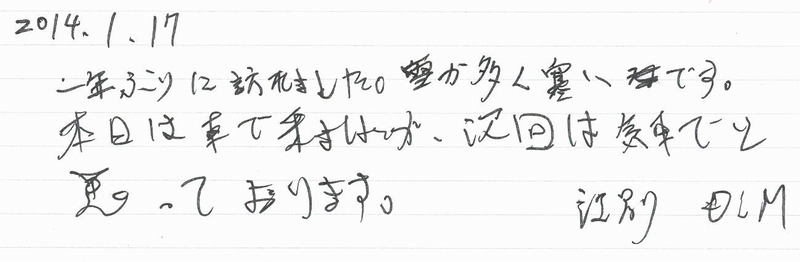 2014.1.17
一年ぶりに訪れました。雪が多く寒いです。
本日は車で来ましたが、次回は汽車でと
思っております。 江別 OLM